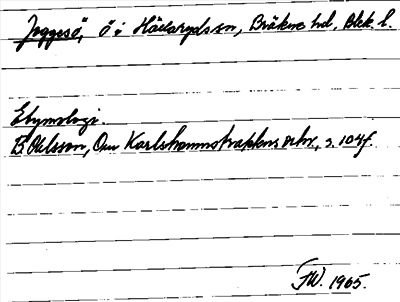 Joggesö, ö i Hällaryds sn, Bräkne hd, Blek. l.
Etymologi.
B Ohlsson, Om Karlshamnstraktens orter, s. 104f.
FW. 1965.